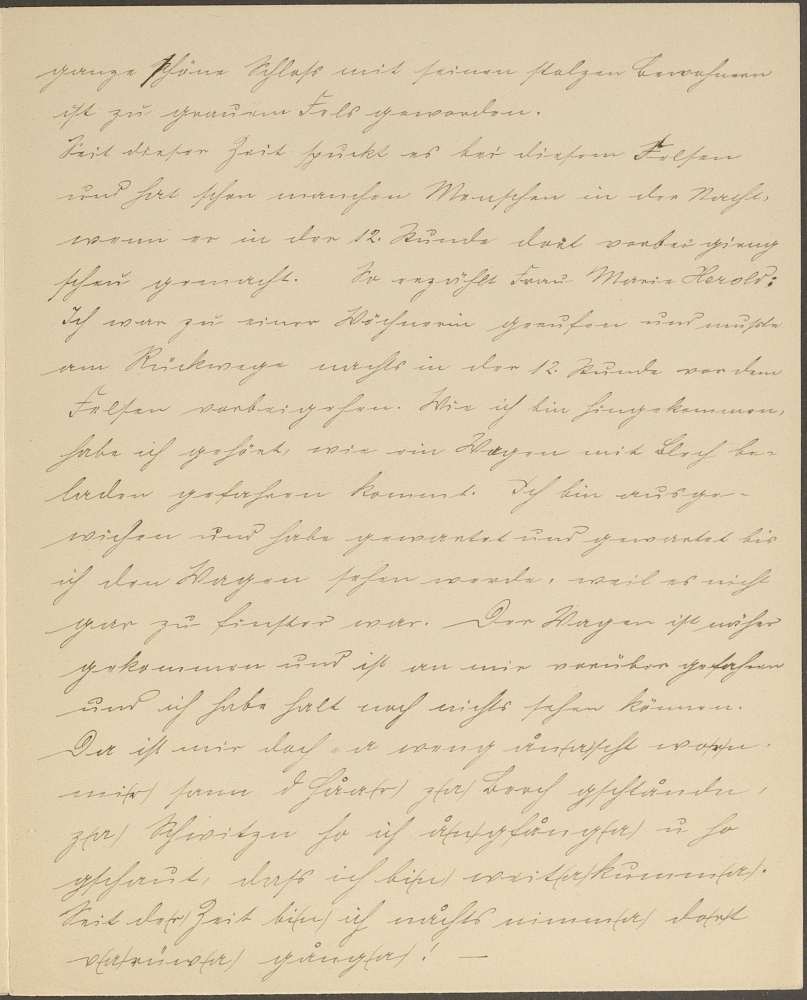 ganze schöne Schloss mit seinen stolzen Bewohnern
ist zu grauem Fels geworden.
Seit dieser Zeit spuckt es bei diesem Felsen
und hat schon manchen Menschen in der Nacht,
wenn er in der 12. Stunde dort vorbei gieng
scheu gemacht. So erzählt Frau Marie Herold:
Ich war zu einer Wöchnerin gerufen und musste
am Rückwege nachts in der 12. Stunde vor dem
Felsen vorbeigehen. Wie ich bin hingekommen,
habe ich gehört, wie ein Wagen mit Blech be-
laden gefahren kommt. Ich bin ausge-
wichen und habe gewartet und gewartet bis
ich den Wagen sehen werde, weil es nicht
gar zu finster war. Der Wagen ist näher
gekommen und ist an mir vorüber gefahren
und ich habe halt noch nichts sehen können.
Da ist mir doch a weng worn.
mi(r) sann d Håa(r) z(a) Berch gschtåndn,
z(a) Schwitzn ho ich å(n)gfång(a) u ho
gschaut, dass ich bi(n) weit(a)kumm(a).
Seit de(r) Zeit bi(n) ich nåchts nimm(a) do(r)t
v(a)rüw(a) gång(a)! —